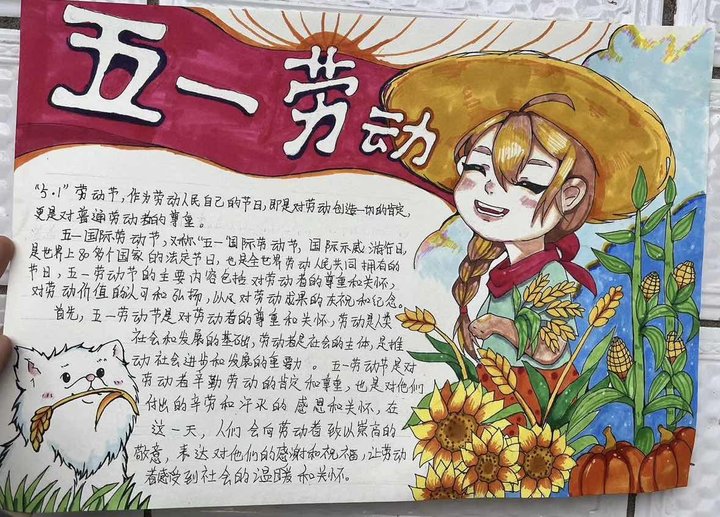 五一劳动
“5.1”劳动节，作为劳动人民自己的节日，即是对劳动创造一切的肯定，
更是对普通劳动者的尊重。
五一国际劳动节，又称“五一”国际劳动节，国际示威游行日，
是世界上80多个国家的法定节日，也是全世界劳动人民共同拥有的
节日，五一劳动节的主要内容包括对劳动者的尊重和关怀，
对劳动价值的认可和弘扬，以及对劳动成果的庆祝和纪念。
首先，五一劳动节是对劳动者的尊重和关怀，劳动是人类
社会和发展的基础，劳动者是社会的主体，是推
动社会进步和发展的重要力。五一劳动节是对
劳动者辛勤劳动的肯定和尊重，也是对他们
付出的辛劳和汗水的感恩和关怀，在
这一天，人们会向劳动者致以崇高的
敬意，表达对他们的感谢和祝福，让劳动
者感受到社会的温暖和关怀。